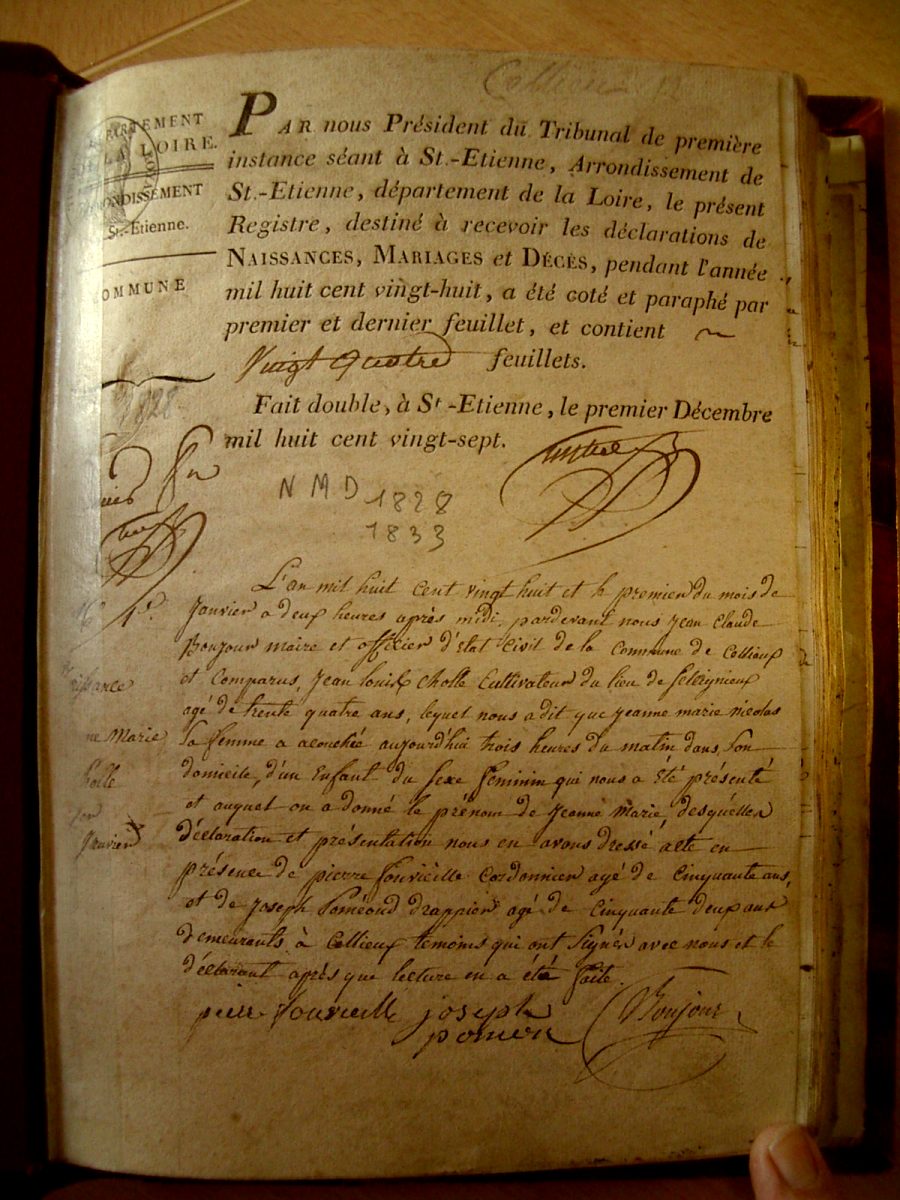 Cellieu
PARTEMENT
LA LOIRE.
ONDISSEMENT
St.-Etienne.
OMMUNE
PAR nous Président du Tribunal de première
instance séant à St.-Etienne, Arrondissement de
St.-Etienne, département de la Loire, le présent
Registre, destiné à recevoir les déclarations de
NAISSANCES, MARIAGES et DÉCÈS, pendant l'année
mil huit cent vingt-huit, a été coté et paraphé par
premier et dernier feuillet, et contient
Vingt quatre feuillets.
Fait double, à St-Etienne, le premier Décembre
mil huit cent vingt-sept.
1828
N M D 1828
1833
1er
L'an mil huit cent vingt huit et le premier du mois de
Janvier a deux heures après midi, pardevant nous Jean Claude
Bonjour maire et officier d'état Civil de la Commune de Cellieux
et Comparus, Jean Louis Cholle Cultivateur du lieu de
agé de trente quatre ans, lequel nous a dit que jeanne marie nicolas
Sa femme a acouchée aujourd'hui trois heures du matin dans Son
domicile, d'un Enfant du Sexe feminin qui nous a été présenté
et auquel on a donné le prénom de Jeanne Marie, desquelles
déclaration et présentation nous en avons dressé acte en
présence de pierre fonvieille Cordonnier agé de Cinquante ans,
et de Joseph drappier agé de Cinquante deux ans
demeurants à Cellieux temoins qui ont Signés avec nous et le
déclarant après que lecture en a été faite.
ne Marie
holle
Janvier
joseph
Bonjour